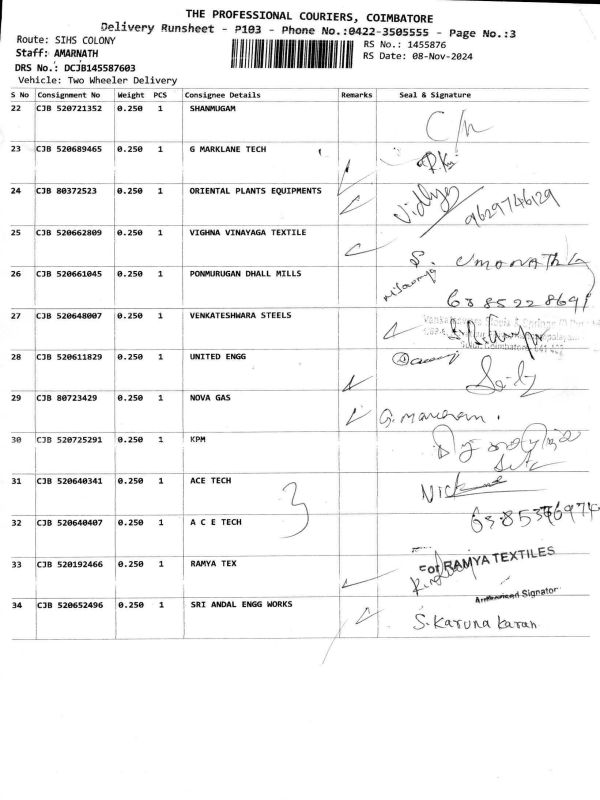 THE PROFESSIONAL COURIERS, COIMBATORE
Delivery Runsheet - P103 - Phone No.:0422-3505555 - Page No.:3
Route: SIHS COLONY
RS No.: 1455876
Staff: AMARNATH
RS Date: 08-Nov-2024
DRS No.: DCJB145587603
Vehicle: Two Wheeler Delivery
S No Consignment No Weight PCS Consignee Details Remarks Seal & Signature
22 CJB 520721352 0.250 1 SHANMUGAM
C/n
23 CJB 520689465 0.250 1 G MARKLANE TECH
24 CJB 80372523 0.250 1 ORIENTAL PLANTS EQUIPMENTS
Vidhya 9629746129
25 CJB 520662809 0.250 1 VIGHNA VINAYAGA TEXTILE
S. UMONATH
26 CJB 520661045 0.250 1 PONMURUGAN DHALL MILLS
27 CJB 520648007 0.250 1 VENKATESHWARA STEELS
28 CJB 520611829 0.250 1 UNITED ENGG
29 CJB 80723429 0.250 1 NOVA GAS
30 CJB 520725291 0.250 1 KPM
31 CJB 520640341 0.250 1 ACE TECH
3
32 CJB 520640407 0.250 1 A C E TECH
33 CJB 520192466 0.250 1 RAMYA TEX
For RAMYA TEXTILES
Authorised Signatory
34 CJB 520652496 0.250 1 SRI ANDAL ENGG WORKS
S. Karuna karan